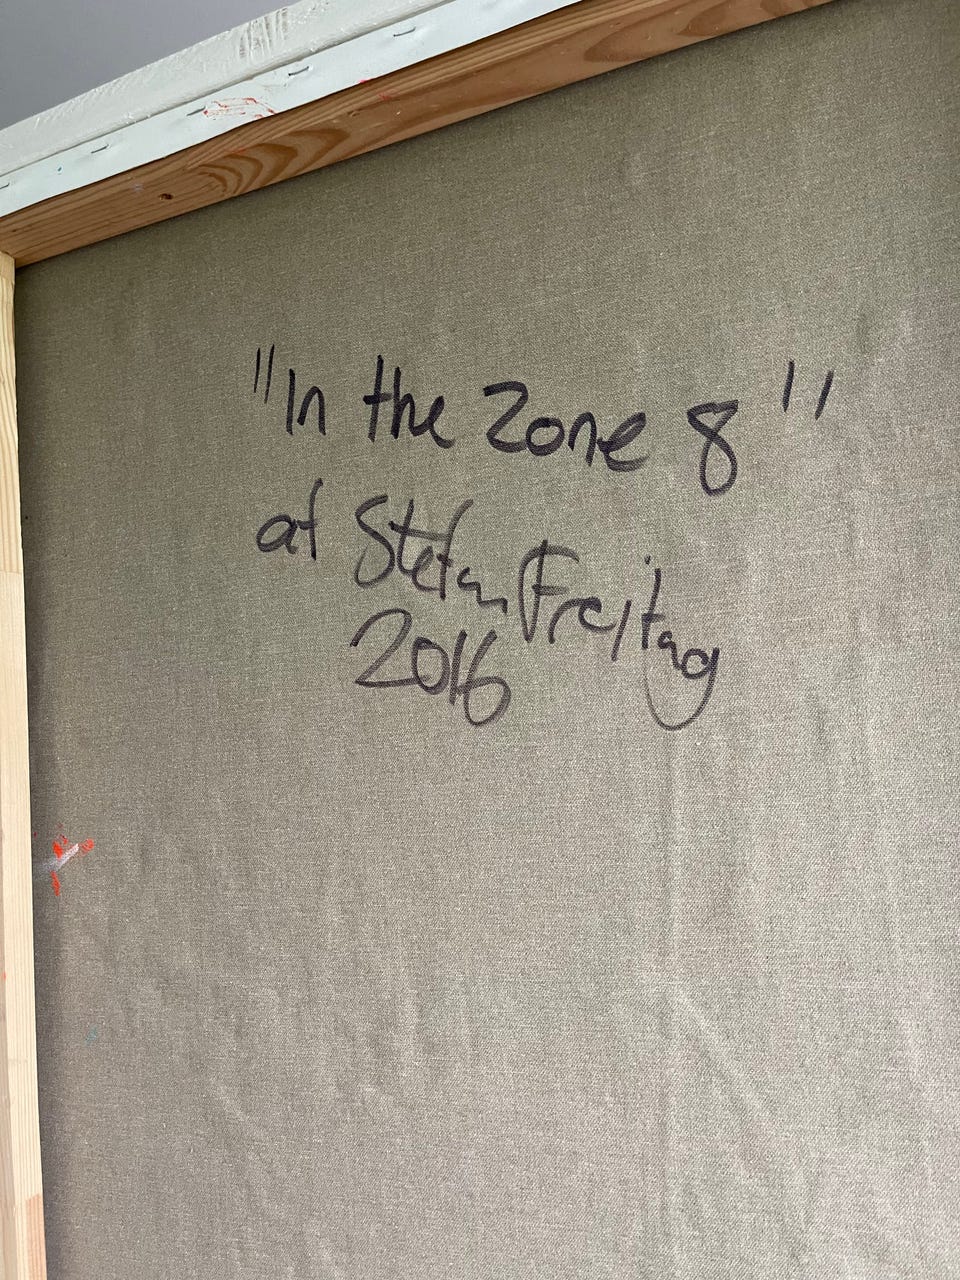 "In the Zone 8"
af Stefan Freitag
2016